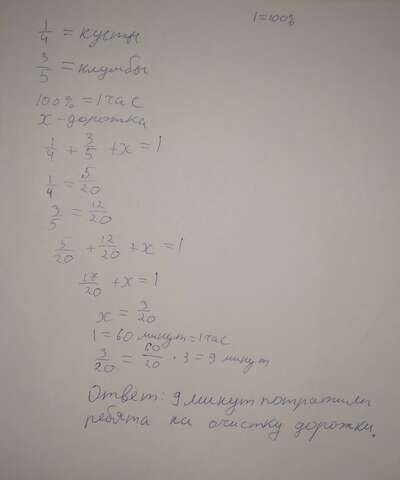 1=100%
1/4 = кусты
3/5 = клумбы
100% = 1 час
x - дорожка
1/4 + 3/5 + x = 1
1/4 = 5/20
3/5 = 12/20
5/20 + 12/20 + x = 1
17/20 + x = 1
x = 3/20
1 = 60 минут = 1 час
3/20 = 60/20 · 3 = 9 минут
Ответ: 9 минут потратили
ребята на очистку дорожки.